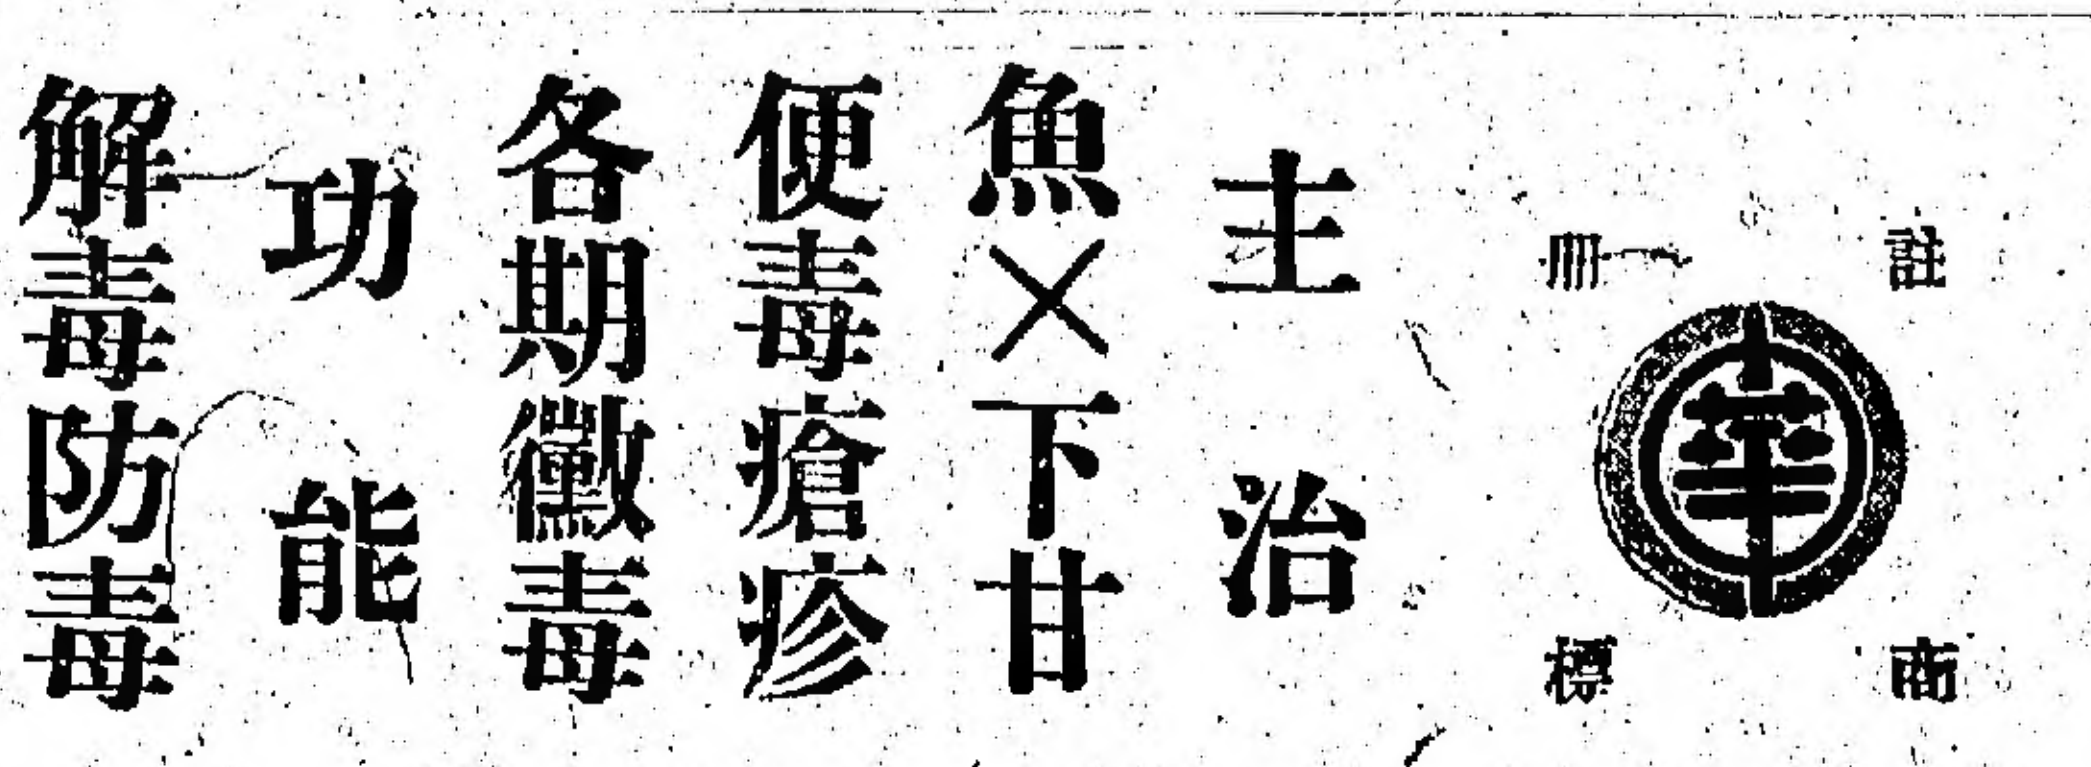 註冊
華
商標
主治
魚×下甘
便毒瘡疹
各期黴毒
功能
解毒防毒